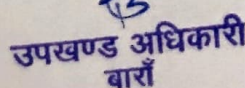 उपखण्ड अधिकारी
बाराँ